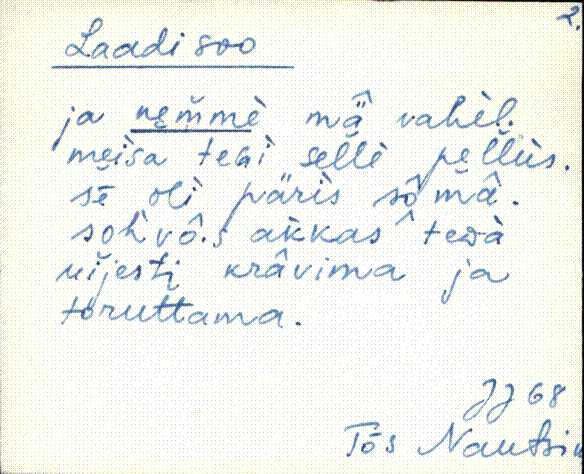 2.
Laadi soo
ja nem̆mè mǟ̂ vahèl.
meìsa tegi sellè pel̆lùs.
sē oli pärìs sô mâ.
sohvô.s ak̆kas tedà
uijesti krâvima ja
toruttama.
JJ 68
Tõs Nautsi